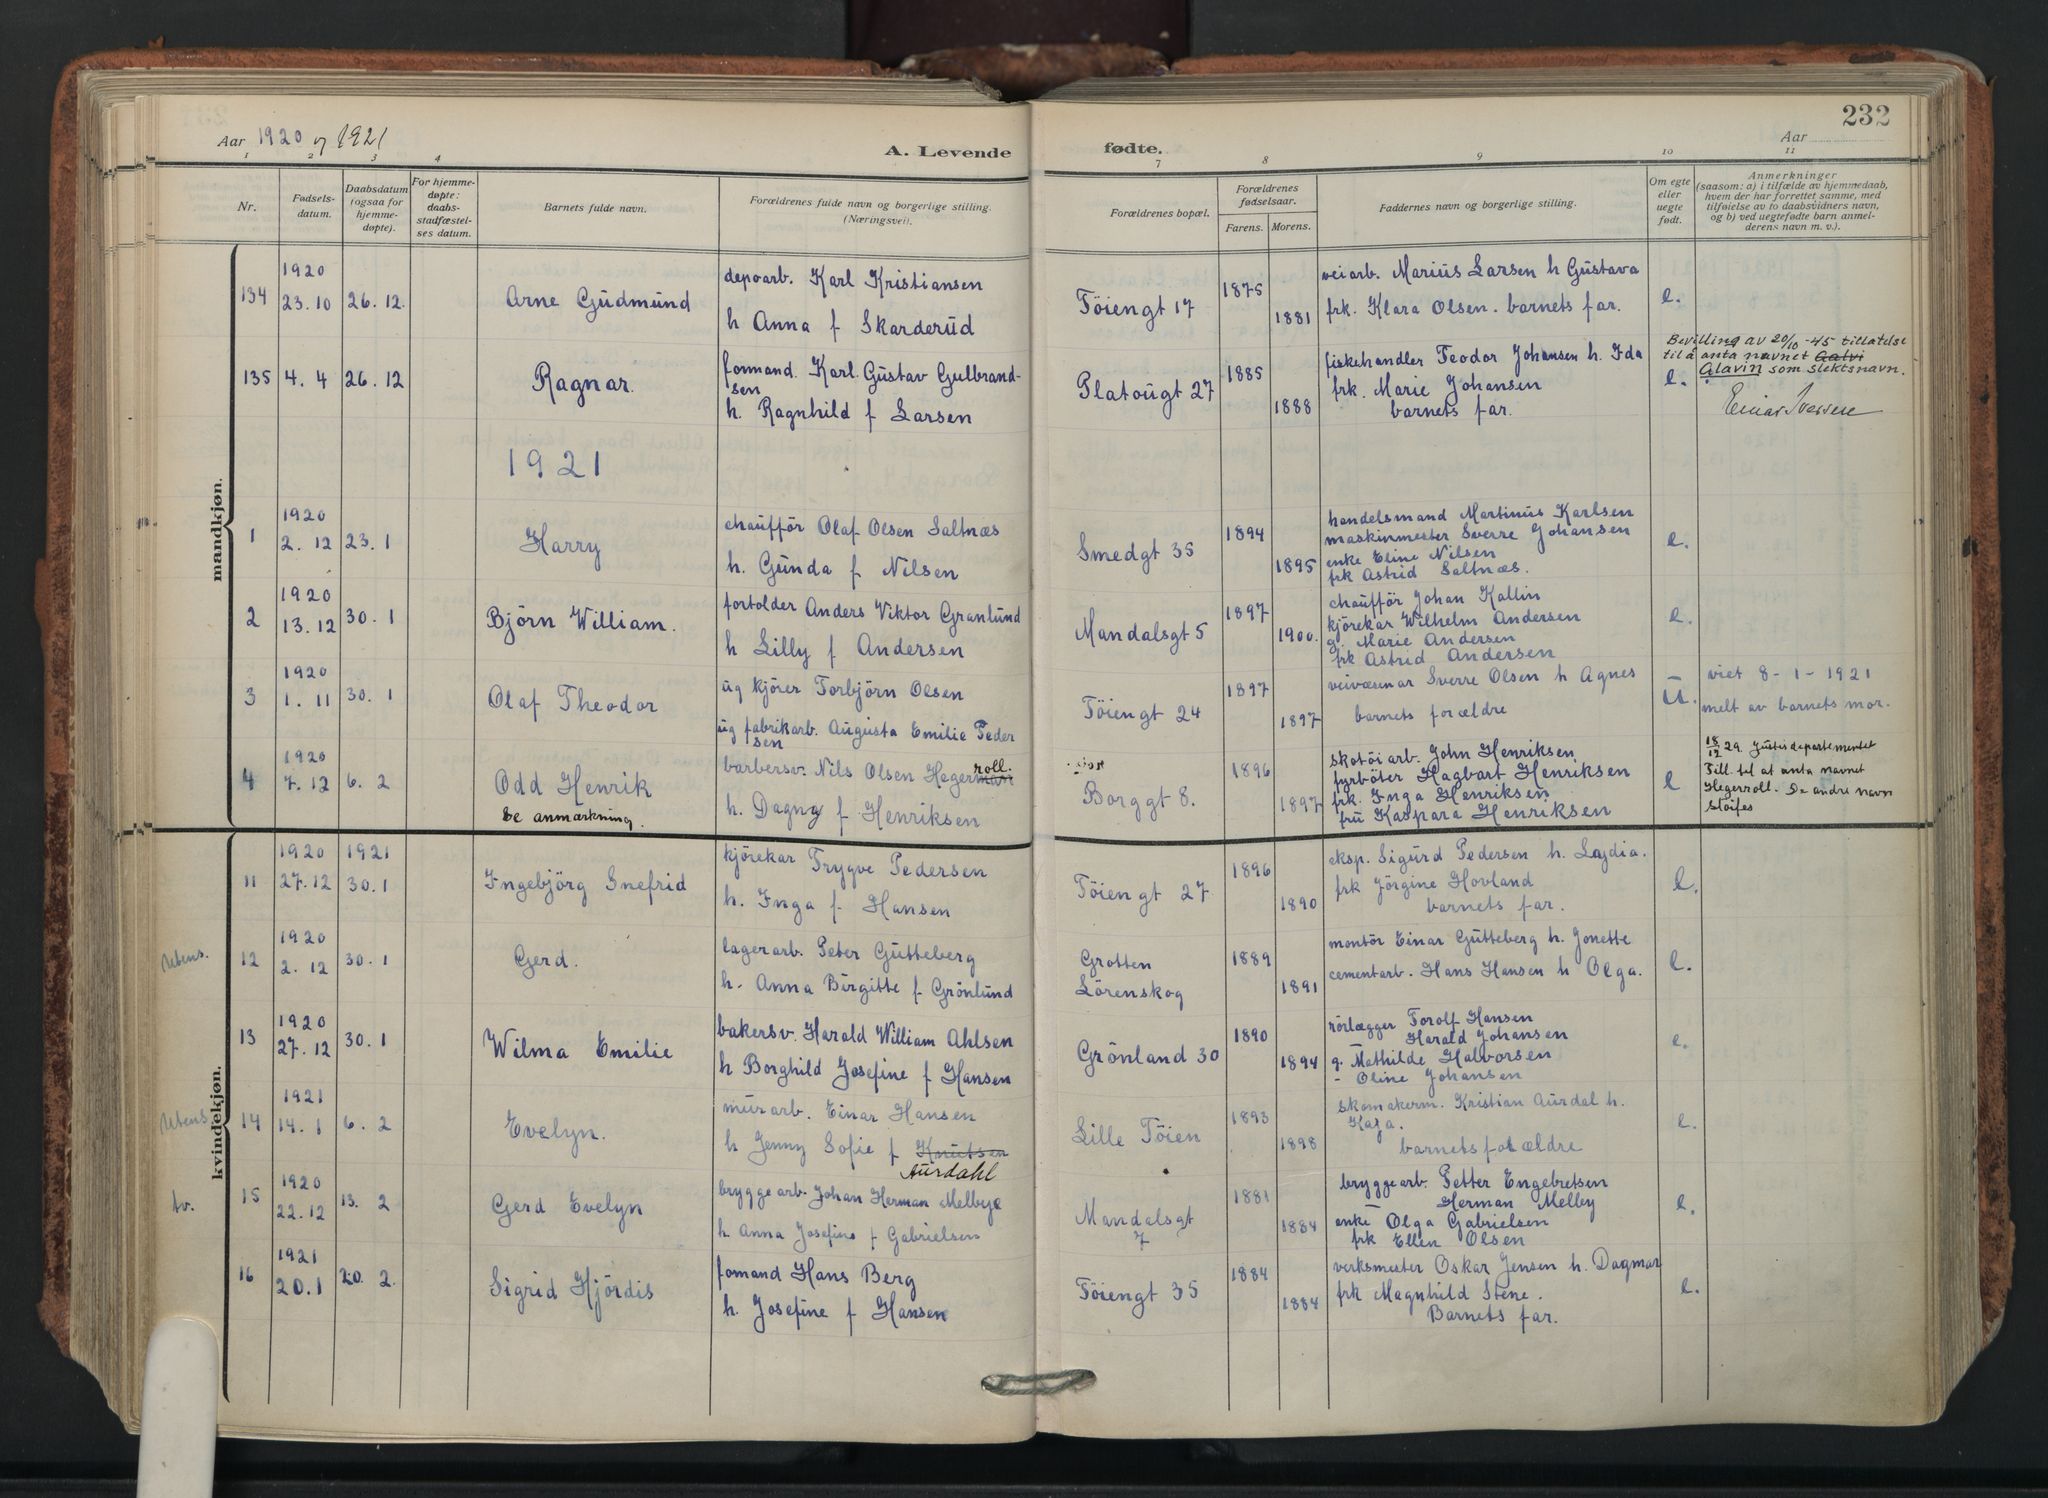 232
Aar 1920 og 1921
A. Levende fødte.
Aar
1 2 3 4 7 8 9 10 11
Nr.
Fødselsdatum.
Daabsdatum (ogsaa for hjemmedøpte).
For hjemmedøpte: daabsstadfæstelses datum.
Barnets fulde navn.
Forældrenes fulde navn og borgerlige stilling. (Næringsvei).
Forældrenes bopæl.
Forældrenes fødselsaar.
Farens. Morens.
Faddernes navn og borgerlige stilling.
Om egte eller uegte født.
Anmerkninger
(saasom: a) i tilfælde av hjemmedaab,
hvem der har forrettet samme, med
tilføielse av to daabsvidners navn,
og b) ved uegtefødte barn anmelderens navn m. v.).
mandkjøn.
134 1920 23.10 26.12 Arne Gudmund
depoarb. Karl Kristiansen
h Anna f Skarderud
Töiengt 17 1875 1881
veiarb. Marius Larsen h Gustava
frk. Klara Olsen. barnets far.
e.
135 4.4 26.12 Ragnar.
formand. Karl Gustav Gulbrandsen
h. Ragnhild f Larsen
Platougt 27 1885 1888
fiskehandler Teodor Johansen h. Ida
frk. Marie Johansen
barnets far.
e.
Bevilling av 20/10 -45 tillatelse
til å anta navnet Galvi
Glavin som slektsnavn.
Einar Iversen
1921
1 1920 2.12 23.1 Harry
chaufför Olaf Olsen Saltnæs
h. Gunda f Nilsen
Smedgt 35 1894 1895
handelsmand Martinus Karlsen
maskinmester Sverre Johansen
enke Eline Nilsen
frk Astrid Saltnæs.
e.
2 1920 13.12 30.1 Björn William.
fortolder Anders Viktor Granlund
h Lilly f Andersen
Mandalsgt 5 1897 1900.
chaufför Johan Kallin
kjörekar Wilhelm Andersen
g. Marie Andersen
frk Astrid Andersen
e.
3 1920 1.11 30.1 Olaf Theodor
ug kjörer Torbjörn Olsen
ug fabrikarb. Augusta Emilie Pedersen
Töiengt 24 1897 1897
veivæsenar Sverre Olsen h Agnes
barnets forældre
U.
viet 8-1-1921
melt av barnets mor.
4 1920 7.12 6.2 Odd Henrik
Se anmærkning.
barbersv. Nils Olsen Hegermann roll.
h. Dagny f Henriksen
Borggt 8. 1896 1897
skotöiarb. John Henriksen
fyrböter Hagbart Henriksen
frk. Inga Henriksen
fru Kaspara Henriksen
e
18/12 29. Justisdepartementet
Till. til at anta navnet
Hegerroll. De andre navn
sløifes
kvindekjøn.
11 1920 27.12 1921 30.1 Ingebjörg Snefrid
kjörekar Trygve Pedersen
h. Inga f Hansen
Töiengt 27. 1896 1890
eksp. Sigurd Pedersen h. Lydia.
frk Jörgine Hovland
barnets far.
e.
Utens.
12 1920 2.12 30.1 Gerd.
lagerarb. Peter Gutteberg
h. Anna Birgitte f Grönlund
Grotten
Lörenskog
1889 1891
montör Einar Gutteberg h. Jonette
cementarb. Hans Hansen h Olga.
e.
13 1920 27.12 30.1 Wilma Emilie
bakersv. Harald William Ahlsen
h Borghild Josefine f Hansen
Grönland 30 1890 1894
rörlægger Torolf Hansen
Harald Johansen
g. Mathilde Halvorsen
- Oline Johansen
e.
Utens.
14 1921 14.1 6.2 Evelyn.
murarb. Einar Hansen
h Jenny Sofie f Knutsen
Aurdahl
Lille Töien 1893 1898
skomakerm. Kristian Aurdal h.
Kaja.
barnets forældre
e.
Av.
15 1920 22.12 13.2 Gerd Evelyn
bryggearb. Johan Herman Melbye
h Anna Josefine f Gabrielsen
Mandalsgt
7
1881 1884
bryggearb. Petter Engebretsen
— Herman Melby
enke Olga Gabrielsen
frk Ellen Olsen
e.
16 1921 20.1 20.2. Sigrid Hjördis
fomand Hans Berg
h. Josefine f Hansen
Töiengt 35 1884 1884
verksmester Oskar Jensen h. Dagmar
frk Magnhild Stene.
Barnets far.
e.